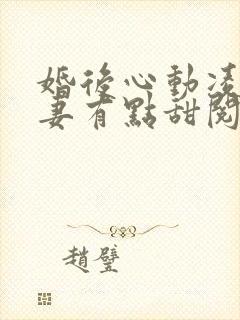 婚後心動凌
妻有點甜閱
趙璧